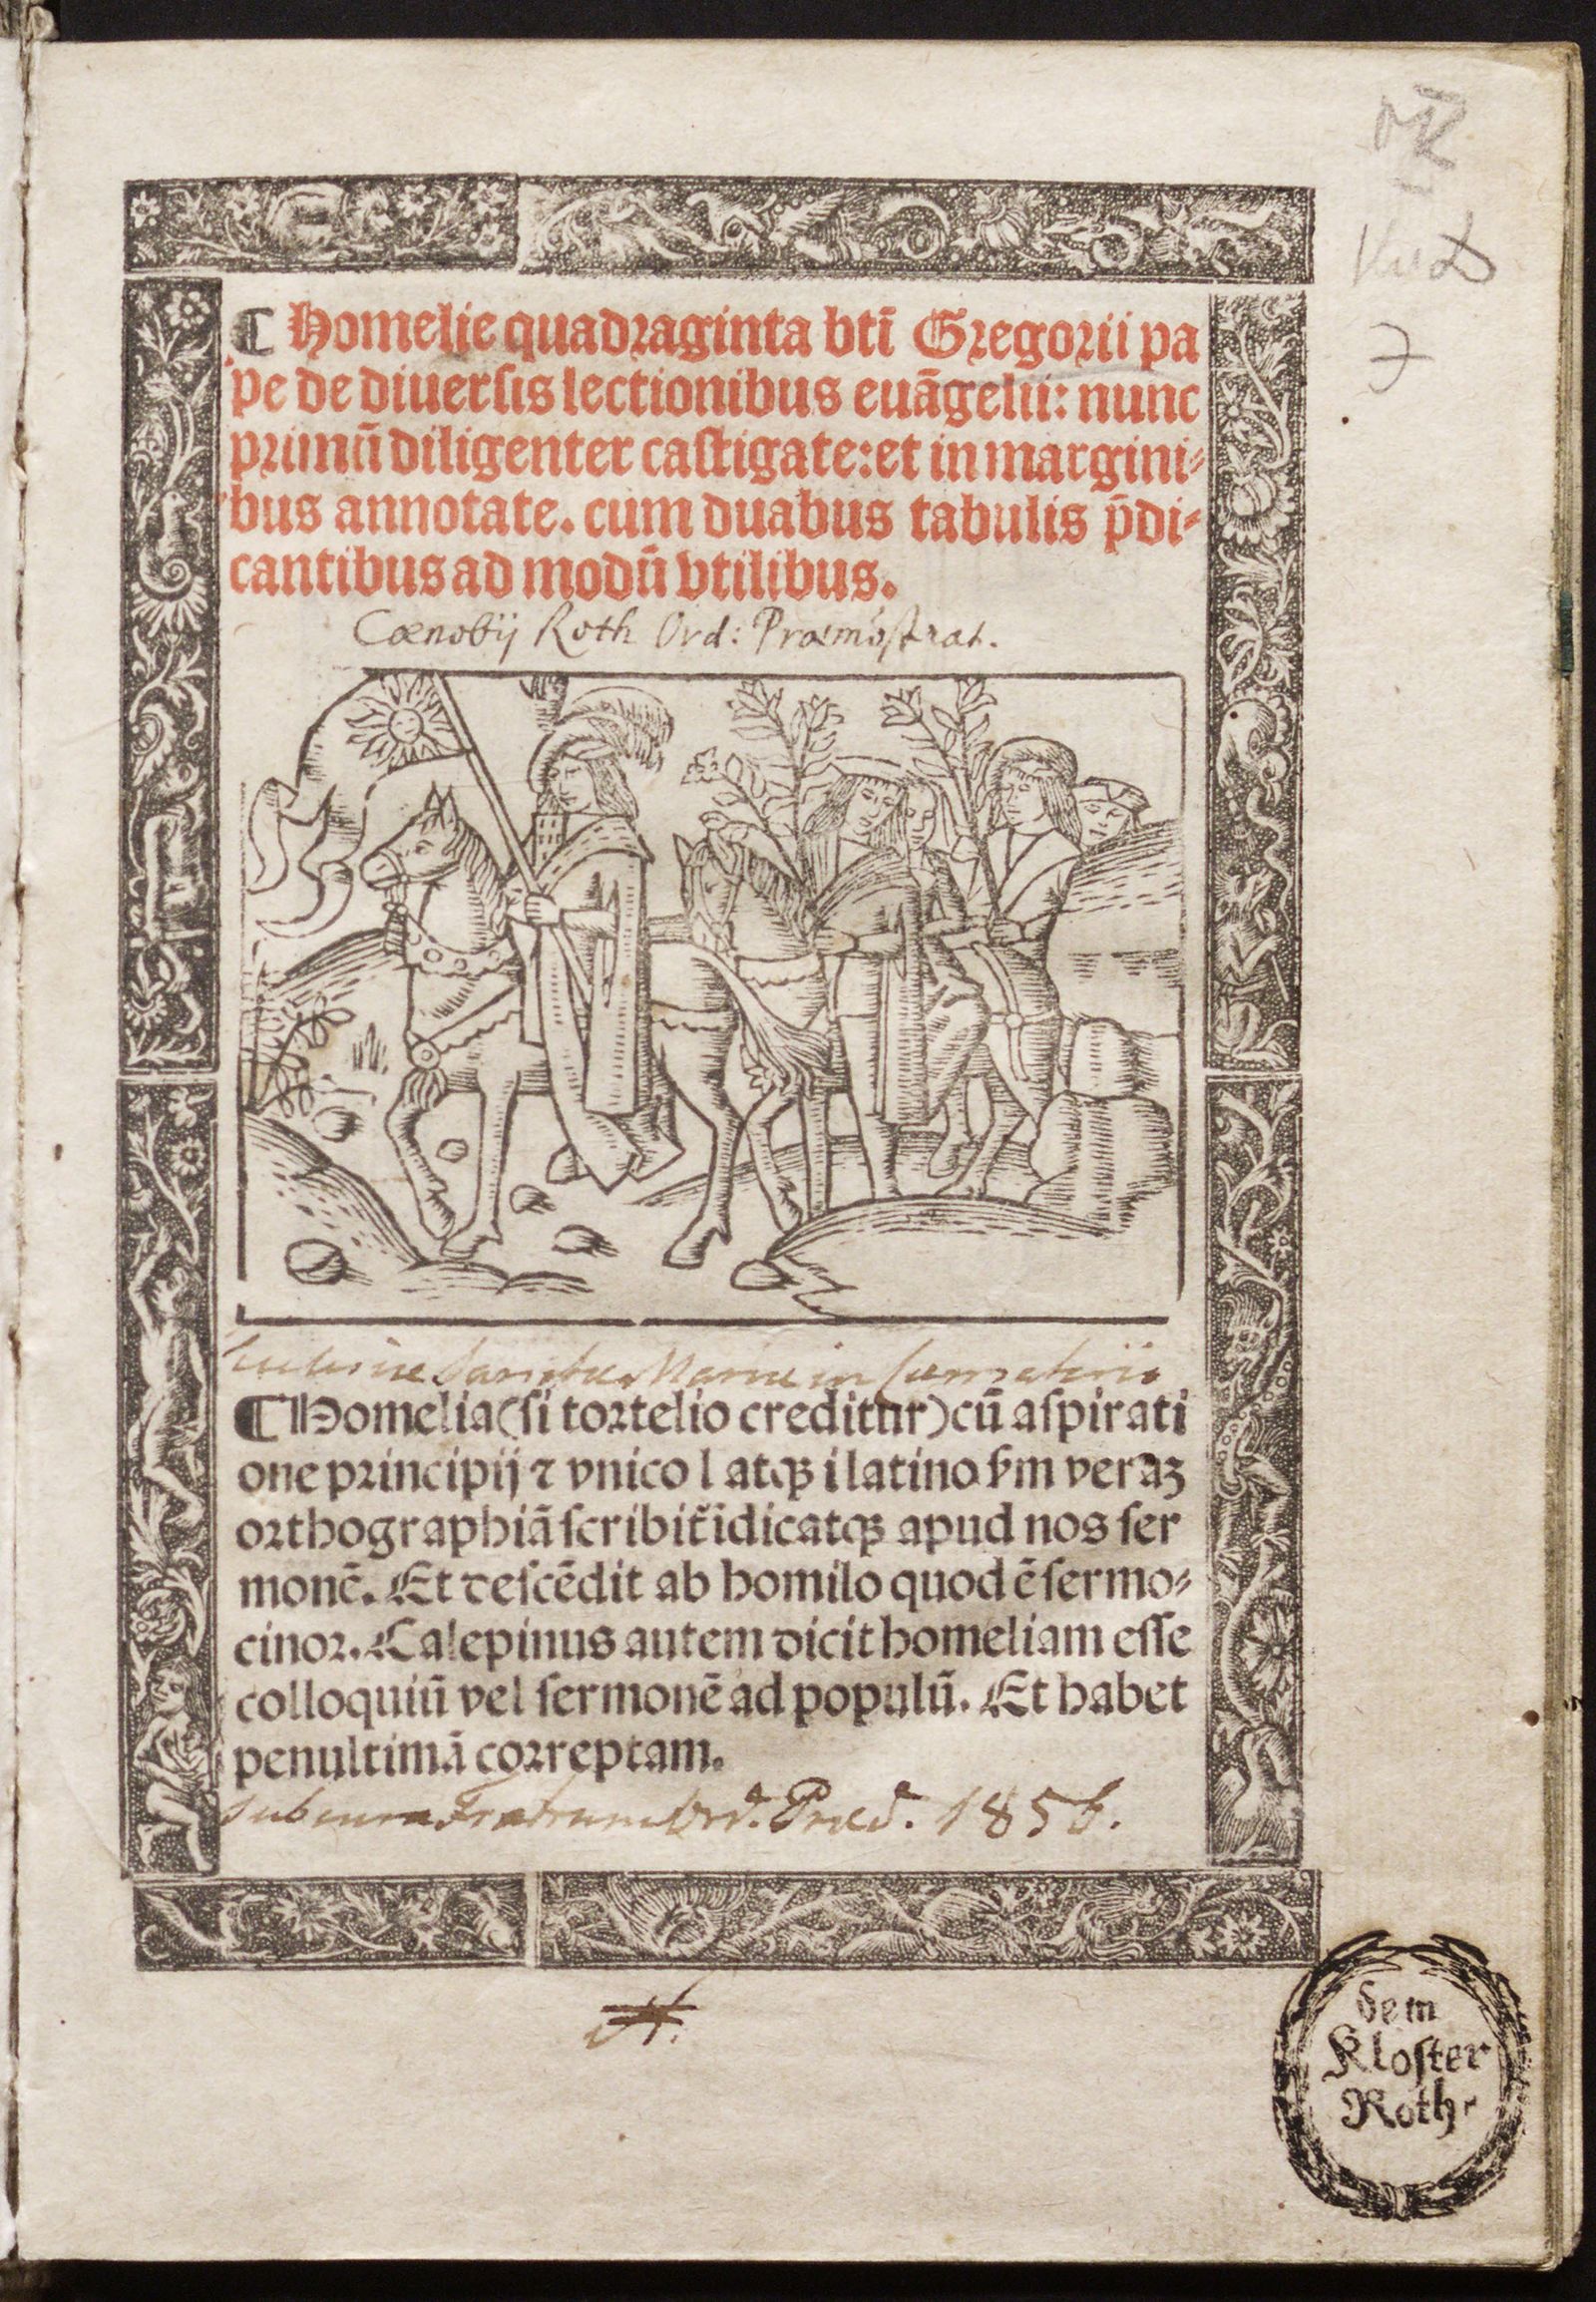 ¶ Homelie quadraginta btī Gregorii pa
pe de diuersis lectionibus euāgelii: nunc
primū diligenter castigate: et in margini⸗
bus annotate. cum duabus tabulis p̄di⸗
cantibus ad modū vtilibus.
Cœnobij Roth Ord: Præmōstrat.
Ecclesiae Sanctae Mariae in
¶ Homelia (si tortelio creditur) cū aspirati
one principij ⁊ vnico l atqꝫ i latino ẜm veraꝫ
orthographiā scribit̄ īdicatqꝫ apud nos ser
monē. Et descēdit ab homilo quod ē sermo⸗
cinor. Calepinus autem dicit homeliam esse
colloquiū vel sermonē ad populū. Et habet
penultimā correptam.
sub cura Fratrum Ord. Præd. 1856.
dem
Kloster
Roth